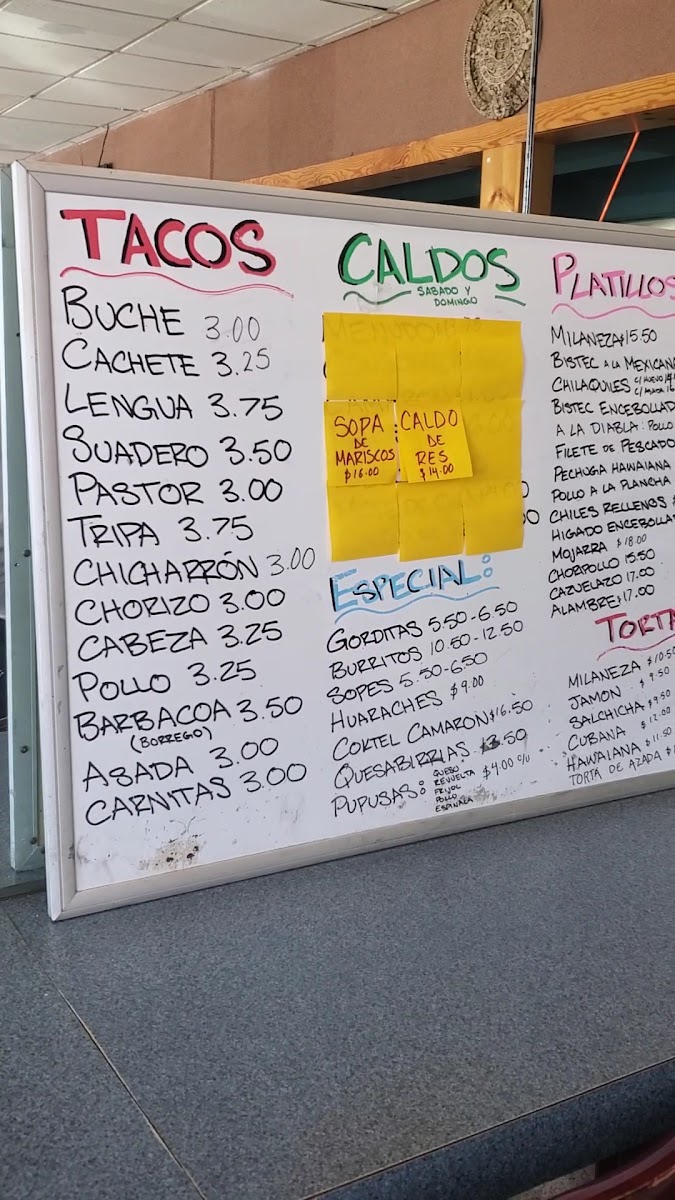 TACOS
BUCHE 3.00
CACHETE 3.25
LENGUA 3.75
SUADERO 3.50
PASTOR 3.00
TRIPA 3.75
CHICHARRÓN 3.00
CHORIZO 3.00
CABEZA 3.25
POLLO 3.25
BARBACOA 3.50
(BORREGO)
ASADA 3.00
CARNITAS 3.00
CALDOS
SABADO Y
DOMINGO
SOPA
DE
MARISCOS
$16.00
CALDO
DE
RES
$14.00
ESPECIAL:
GORDITAS 5.50-6.50
BURRITOS 10.50-12.50
SOPES 5.50-6.50
HUARACHES $9.00
COKTEL CAMARON $16.50
QUESABIRRIAS 13.50
PUPUSAS: $4.00 c/u
QUESO
REVUELTA
FRIJOL
POLLO
ESPINALA
PLATILLOS
MILANEZA $15.50
BISTEC A LA MEXICANA
CHILAQUILES C/HUEVO
BISTEC ENCEBOLLAD
A LA DIABLA: POLLO
FILETE DE PESCADO
PECHUGA HAWAIANA
POLLO A LA PLANCHA
CHILES RELLENOS
HIGADO ENCEBOLLA
MOJARRA $18.00
CHORPOLLO 15.50
CAZUELAZO 17.00
ALAMBRE $17.00
TORTA
MILANEZA $10.50
JAMON $9.50
SALCHICHA $9.50
CUBANA $12.00
HAWAIANA $11.50
TORTA DE AZADA